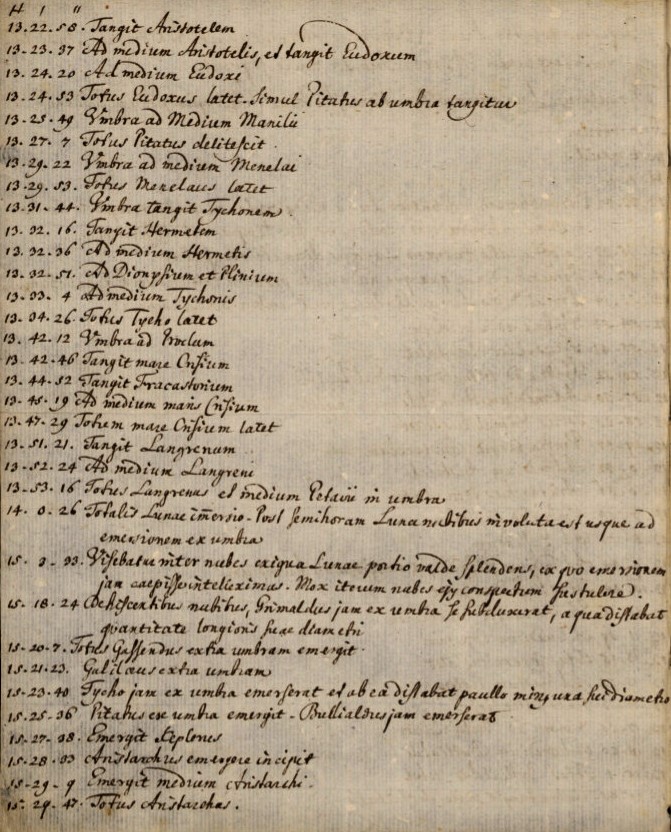 H ı ıı
13. 22. 58. Tangit Aristotelem
13. 23. 37 Ad medium Aristotelis, et tangit Eudoxum
13. 24. 20 Ad medium Eudoxi
13. 24. 53 Totus Eudoxus latet. Simul Pitatus ab umbra tangitur
13. 25. 49 Vmbra ad Medium Manilii
13. 27. 7 Totus Pitatus delitescit.
13. 29. 22 Vmbra ad medium Menelai
13. 29. 53. Totus Menelaus latet
13. 31. 44. Vmbra tangit Tychonem.
13. 32. 16. Tangit Hermetem
13. 32. 36 Ad medium Hermetis
13. 32. 51. Ad Dionysium et Plinium
13. 33. 4 Ad medium Tychonis
13. 34. 26. Totus Tycho latet
13. 42. 12 Vmbra ad Proclum
13. 42. 46 Tangit mare Crisium
13. 44. 52 Tangit Fracastorium
13. 45. 19 Ad medium maris Crisium
13. 47. 29 Totum mare Crisium latet
13. 51. 21. Tangit Langrenum
13. 52. 24 Ad medium Langreni
13. 53. 16 Totus Langrenus et medium Petavii in umbra
14. 0. 26 Totalis Lunae im̄ersio. Post semihoram Luna nubibus involuta est usque ad
emersionem ex umbra
15. 9. 33. Videbatur inter nubes exigua Lunae portio valde splendens, ex quo emersionem
jam caepisse intelleximus. Mox iterum nubes conspectum sustulere.
15. 18. 24 Dehiscentibus nubibus, Grimaldus jam ex umbra se subduxerat, a qua distabat
quantitate longioris suae diametri
15. 20. 7. Totus Gassendus extra umbram emergit.
15. 21. 23. Galilaeus extra umbram
15. 23. 40 Tycho jam ex umbra emerserat et ab ea distabat paullo minus una sui diametro
15. 25. 36 Pitatus ex umbra emergit. Bullialdus jam emerserat
15. 27. 38. Emergit Keplerus
15. 28. 33 Aristarchus emergere incipit
15. 29. 9 Emergit medium Aristarchi.
15. 29. 47. Totus Aristarchus.